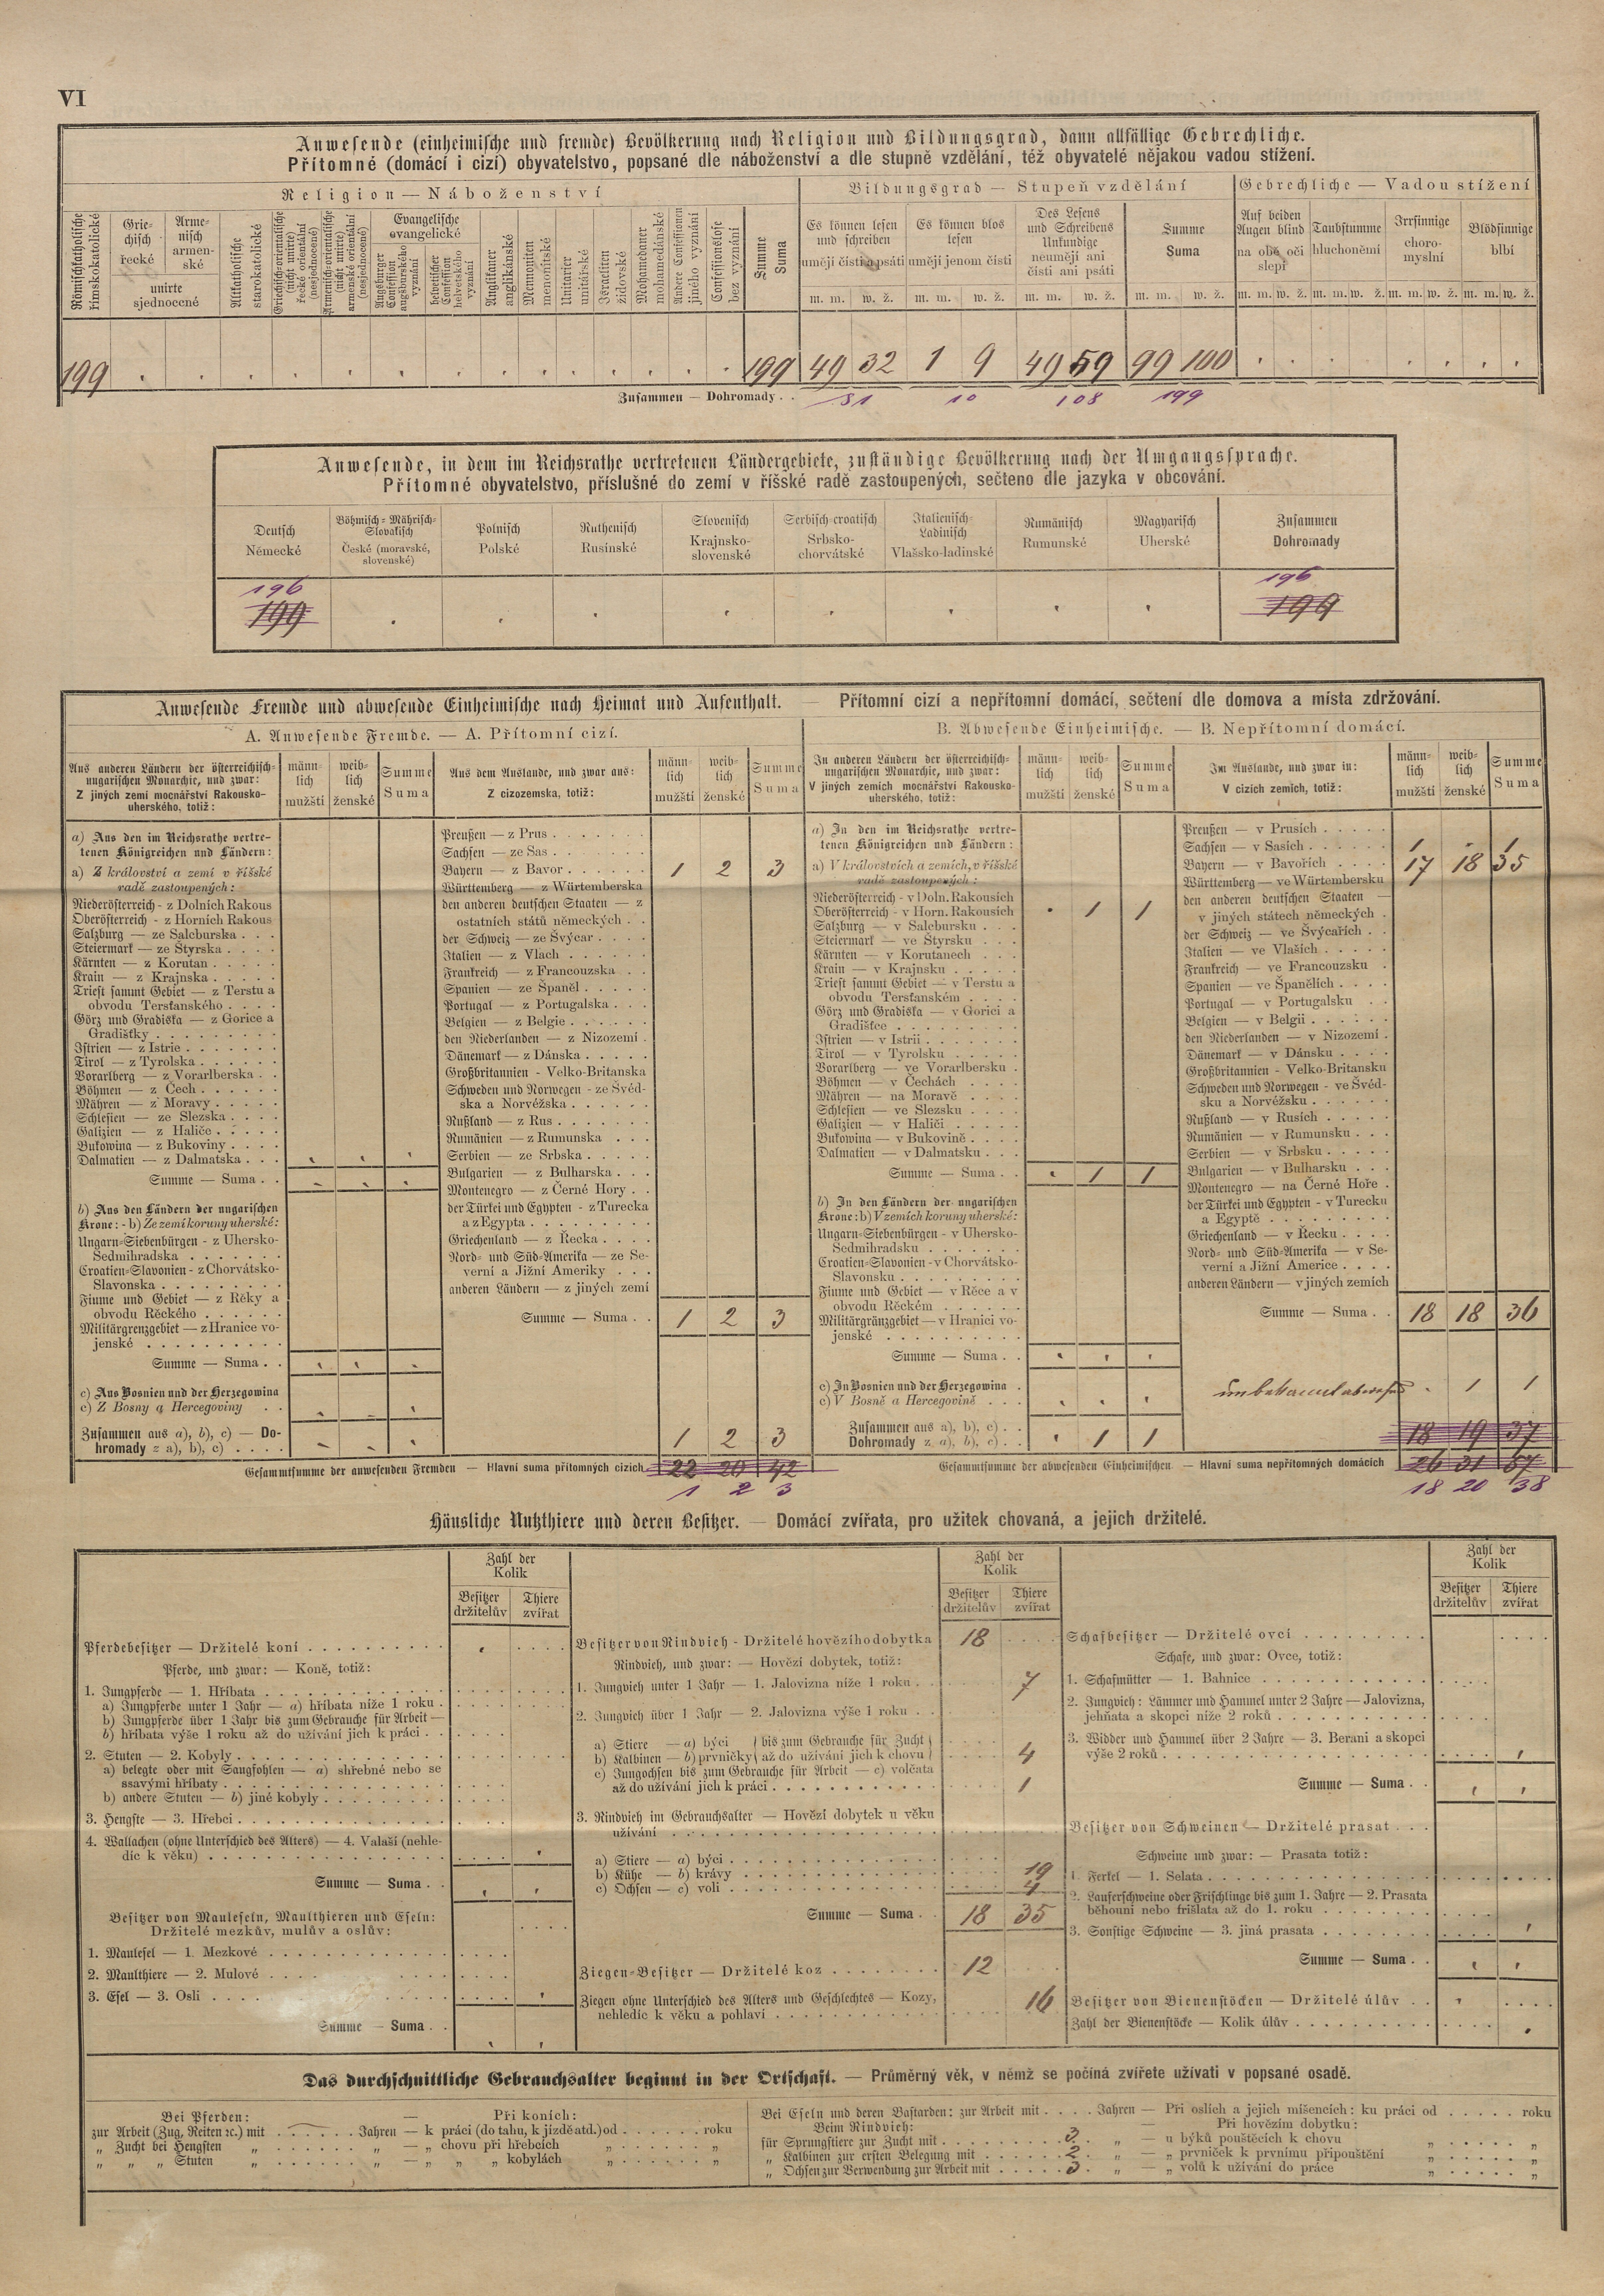 VI
Anwesende (einheimische und fremde) Bevölkerung nach Religion und Bildungsgrad, dann allfällige Gebrechliche.
Přítomné (domácí i cizí) obyvatelstvo, popsané dle náboženství a dle stupně vzdělání, též obyvatelé nějakou vadou stížení.
Religion — Náboženství
Bildungsgrad — Stupeň vzdělání
Gebrechliche — Vadou stížení
Römischkatholische římskokatolické
Griechisch řecké
Armenisch armenské
unirte sjednocené
Altkatholische starokatolické
Griechisch-orientalische (nicht unirte) řecké orientální (nesjednocené)
Armenisch-orientalische (nicht unirte) armenské orientální (nesjednocené)
Evangelische evangelické
Augsburger Confession augsburského vyznání
helvetischer Confession helvetského vyznání
Anglikaner anglikánské
Mennoniten menonitské
Unitarier unitářské
Israeliten židovské
Mohamedaner mohamedánské
Andere Confessionen jiného vyznání
Confessionslose bez vyznání
Summe Suma
Es können lesen und schreiben umějí čísti a psáti
Es können blos lesen umějí jenom čísti
Des Lesens und Schreibens Unkundige neumějí ani čísti ani psáti
Summe Suma
Auf beiden Augen blind na obě oči slepí
Taubstumme hluchoněmí
Irrsinnige choromyslní
Blödsinnige blbí
m. m. w. ž. m. m. w. ž. m. m. w. ž. m. m. w. ž. m. m. w. ž. m. m. w. ž. m. m. w. ž. m. m. w. ž.
199 . . . . . . . . . . . . . . . 199 49 32 1 9 49 59 99 100 . . . . . . . .
Zusammen — Dohromady . . 81 10 108 199
Anwesende, in dem im Reichsrathe vertretenen Ländergebiete, zuständige Bevölkerung nach der Umgangssprache.
Přítomné obyvatelstvo, příslušné do zemí v říšské radě zastoupených, sečteno dle jazyka v obcování.
Deutsch Německé
Böhmisch-Mährisch-Slovakisch České (moravské, slovenské)
Polnisch Polské
Ruthenisch Rusínské
Slovenisch Krajnsko-slovenské
Serbisch-croatisch Srbsko-chorvátské
Italienisch-Ladinisch Vlašsko-ladinské
Rumänisch Rumunské
Magyarisch Uherské
Zusammen Dohromady
196 196
199 . . . . . . . . 199
Anwesende Fremde und abwesende Einheimische nach Heimat und Aufenthalt. — Přítomní cizí a nepřítomní domácí, sečtení dle domova a místa zdržování.
A. Anwesende Fremde. — A. Přítomní cizí.
Aus anderen Ländern der österreichisch-ungarischen Monarchie, und zwar:
Z jiných zemí mocnářství Rakousko-uherského, totiž:
männlich mužští
weiblich ženské
Summe Suma
Aus dem Auslande, und zwar aus:
Z cizozemska, totiž:
männlich mužští
weiblich ženské
Summe Suma
a) Aus den im Reichsrathe vertretenen Königreichen und Ländern:
a) Z království a zemí v říšské radě zastoupených:
Niederösterreich - z Dolních Rakous
Oberösterreich - z Horních Rakous
Salzburg — ze Salcburska . . .
Steiermark — ze Štyrska . . . .
Kärnten — z Korutan . . . . .
Krain — z Krajnska . . . . .
Triest sammt Gebiet — z Terstu a obvodu Terstanského . . . .
Görz und Gradiska — z Gorice a Gradištky . . . . . . . .
Istrien — z Istrie . . . . . .
Tirol — z Tyrolska . . . . . .
Vorarlberg — z Vorarlberska . .
Böhmen — z Čech . . . . . .
Mähren — z Moravy . . . . .
Schlesien — ze Slezska . . . .
Galizien — z Haliče . . . . .
Bukowina — z Bukoviny . . . .
Dalmatien — z Dalmatska . . . . . .
Summe — Suma . . . . .
b) Aus den Ländern der ungarischen Krone: - b) Ze zemí koruny uherské:
Ungarn-Siebenbürgen - z Uhersko-Sedmihradska . . . . . .
Croatien-Slavonien - z Chorvátsko-Slavonska . . . . . . . .
Fiume und Gebiet — z Rěky a obvodu Rěckého . . . . . .
Militärgrenzgebiet — z Hranice vojenské . . . . . . . . .
Summe — Suma . . . . .
c) Aus Bosnien und der Herzegowina
c) Z Bosny a Hercegoviny . . . . .
Zusammen aus a), b), c) — Dohromady z a), b), c) . . . . . . .
Preußen — z Prus . . . . . . .
Sachsen — ze Sas . . . . . . .
Bayern — z Bavor . . . . . . 1 2 3
Württemberg — z Würtemberska
den anderen deutschen Staaten — z ostatních států německých . .
der Schweiz — ze Švýcar . . . .
Italien — z Vlach . . . . . .
Frankreich — z Francouzska . .
Spanien — ze Španěl . . . . .
Portugal — z Portugalska . . .
Belgien — z Belgie . . . . . .
den Niederlanden — z Nizozemí .
Dänemark — z Dánska . . . . .
Großbritannien - Velko-Britanska
Schweden und Norwegen - ze Švédska a Norvéžska . . . . . .
Rußland — z Rus . . . . . . .
Rumänien — z Rumunska . . .
Serbien — ze Srbska . . . . .
Bulgarien — z Bulharska . . .
Montenegro — z Černé Hory . .
der Türkei und Egypten - z Turecka a z Egypta . . . . . . . .
Griechenland — z Řecka . . . .
Nord- und Süd-Amerika — ze Severní a Jižní Ameriky . . .
anderen Ländern — z jiných zemí
Summe — Suma . . 1 2 3
1 2 3
Gesammtsumme der anwesenden Fremden — Hlavní suma přítomných cizích 22 20 42
1 2 3
B. Abwesende Einheimische. — B. Nepřítomní domácí.
In anderen Ländern der österreichisch-ungarischen Monarchie, und zwar:
V jiných zemích mocnářství Rakousko-uherského, totiž:
männlich mužští
weiblich ženské
Summe Suma
Im Auslande, und zwar in:
V cizích zemích, totiž:
männlich mužští
weiblich ženské
Summe Suma
a) In den im Reichsrathe vertretenen Königreichen und Ländern:
a) V královstvích a zemích, v říšské radě zastoupených:
Niederösterreich - v Doln. Rakousích
Oberösterreich - v Horn. Rakousích . 1 1
Salzburg — v Salcbursku . . .
Steiermark — ve Štyrsku . . .
Kärnten — v Korutanech . . .
Krain — v Krajnsku . . . . .
Triest sammt Gebiet — v Terstu a obvodu Terstanském . . . .
Görz und Gradiska — v Gorici a Gradištce . . . . . . . .
Istrien — v Istrii . . . . . . .
Tirol — v Tyrolsku . . . . .
Vorarlberg — ve Vorarlbersku .
Böhmen — v Čechách . . . .
Mähren — na Moravě . . . .
Schlesien — ve Slezsku . . . .
Galizien — v Haliči . . . . .
Bukowina — v Bukovině . . . .
Dalmatien — v Dalmatsku . . .
Summe — Suma . . . 1 1
b) In den Ländern der ungarischen Krone: b) V zemích koruny uherské:
Ungarn-Siebenbürgen - v Uhersko-Sedmihradsku . . . . . .
Croatien-Slavonien - v Chorvátsko-Slavonsku . . . . . . . .
Fiume und Gebiet — v Rěce a v obvodu Rěckém . . . . . .
Militärgränzgebiet — v Hranici vojenské . . . . . . . . .
Summe — Suma . . . . .
c) In Bosnien und der Herzegowina .
c) V Bosně a Hercegovině . . . . . .
Zusammen aus a), b), c) . .
Dohromady z a), b), c) . . . 1 1
Preußen — v Prusích . . . . .
Sachsen — v Sasích . . . . . 1 . 1
Bayern — v Bavořích . . . . 17 18 35
Württemberg — ve Würtembersku
den anderen deutschen Staaten — v jiných státech německých .
der Schweiz — ve Švýcařích . .
Italien — ve Vlaších . . . . .
Frankreich — ve Francouzsku .
Spanien — ve Španělích . . . .
Portugal — v Portugalsku . .
Belgien — v Belgii . . . . .
den Niederlanden — v Nizozemí .
Dänemark — v Dánsku . . . .
Großbritannien - Velko-Britansku
Schweden und Norwegen - ve Švédsku a Norvéžsku . . . . . .
Rußland — v Rusích . . . . .
Rumänien — v Rumunsku . . .
Serbien — v Srbsku . . . . .
Bulgarien — v Bulharsku . . .
Montenegro — na Černé Hoře .
der Türkei und Egypten - v Turecku a Egyptě . . . . . . . . .
Griechenland — v Řecku . . . .
Nord- und Süd-Amerika — v Severní a Jižní Americe . . . .
anderen Ländern — v jiných zemích
Summe — Suma . . 18 18 36
unbekannt abwesend . 1 1
18 19 37
Gesammtsumme der abwesenden Einheimischen — Hlavní suma nepřítomných domácích 26 31 57
18 20 38
Häusliche Nutzthiere und deren Besitzer. — Domácí zvířata, pro užitek chovaná, a jejich držitelé.
Zahl der Kolik
Besitzer držitelův
Thiere zvířat
Pferdebesitzer — Držitelé koní . . . . . . . . .
Pferde, und zwar: — Koně, totiž:
1. Jungpferde — 1. Hříbata . . . . . . . . . .
a) Jungpferde unter 1 Jahr — a) hříbata níže 1 roku .
b) Jungpferde über 1 Jahr bis zum Gebrauche für Arbeit — b) hříbata výše 1 roku až do užívání jich k práci . .
2. Stuten — 2. Kobyly . . . . . . . . . . . .
a) belegte oder mit Saugfohlen — a) shřebné nebo se ssavými hříbaty . . . . . . . . . . . .
b) andere Stuten — b) jiné kobyly . . . . . . .
3. Hengste — 3. Hřebci . . . . . . . . . . . .
4. Wallachen (ohne Unterschied des Alters) — 4. Valaši (nehledíc k věku) . . . . . . . . . . . . . .
Summe — Suma . .
Besitzer von Mauleseln, Maulthieren und Eseln:
Držitelé mezkův, mulův a oslův:
1. Maulesel — 1. Mezkové . . . . . . . . . .
2. Maulthiere — 2. Mulové . . . .
3. Esel — 3. Osli . . . .
Summe — Suma . .
Zahl der Kolik
Besitzer držitelův
Thiere zvířat
Besitzer von Rindvieh - Držitelé hovězího dobytka 18
Rindvieh, und zwar: — Hovězí dobytek, totiž:
1. Jungvieh unter 1 Jahr — 1. Jalovizna níže 1 roku . . 7
2. Jungvieh über 1 Jahr — 2. Jalovizna výše 1 roku . .
a) Stiere — a) býci } bis zum Gebrauche für Zucht
b) Kalbinen — b) prvničky } až do užívání jich k chovu 4
c) Jungochsen bis zum Gebrauche für Arbeit — c) volčata až do užívání jich k práci . . . . . . . . . . 1
3. Rindvieh im Gebrauchsalter — Hovězí dobytek u věku užívání . . . . . . . . . . . . . .
a) Stiere — a) býci . . . . . . . . . . . .
b) Kühe — b) krávy . . . . . . . . . . . 19
c) Ochsen — c) voli . . . . . . . . . . . . 4
Summe — Suma . . 18 35
Ziegen-Besitzer — Držitelé koz . . . . . . . 12
Ziegen ohne Unterschied des Alters und Geschlechtes — Kozy, nehledíc k věku a pohlaví . . . . . . . . . 16
Zahl der Kolik
Besitzer držitelův
Thiere zvířat
Schafbesitzer — Držitelé ovcí . . . . . . . . .
Schafe, und zwar: Ovce, totiž:
1. Schafmütter — 1. Bahnice . . . . . . . . . .
2. Jungvieh: Lämmer und Hammel unter 2 Jahre — Jalovizna, jehňata a skopci níže 2 roků . . . . . . . . .
3. Widder und Hammel über 2 Jahre — 3. Berani a skopci výše 2 roků . . . . . . . . . . . . . . .
Summe — Suma . .
Besitzer von Schweinen — Držitelé prasat . . .
Schweine und zwar: — Prasata totiž:
1. Ferkel — 1. Selata . . . . . . . . . . . .
2. Lauferschweine oder Frischlinge bis zum 1. Jahre — 2. Prasata běhouni nebo frišlata až do 1. roku . . . . . .
3. Sonstige Schweine — 3. jiná prasata . . . . . . .
Summe — Suma . .
Besitzer von Bienenstöcken — Držitelé úlův . .
Zahl der Bienenstöcke — Kolik úlův . . . . . . . .
Das durchschnittliche Gebrauchsalter beginnt in der Ortschaft. — Průměrný věk, v němž se počíná zvířete užívati v popsané osadě.
Bei Pferden: — Při koních:
zur Arbeit (Zug, Reiten ꝛc.) mit . . . . . Jahren — k práci (do tahu, k jízdě atd.) od . . . . . . roku
„ Zucht bei Hengsten „ . . . . . . „ — „ chovu při hřebcích „ . . . . . . „
„ „ „ Stuten „ . . . . . . „ — „ „ „ kobylách „ . . . . . . „
Bei Eseln und deren Bastarden: zur Arbeit mit . . . . Jahren — Při oslích a jejich míšencích: ku práci od . . . . . roku
Beim Rindvieh: — Při hovězím dobytku:
für Sprungstiere zur Zucht mit . . . . . . . 3 . „ — u býků pouštěcích k chovu „ . . . . . „
„ Kalbinen zur ersten Belegung mit . . . . . 2 . „ — „ prvniček k prvnímu připouštění „ . . . . . „
„ Ochsen zur Verwendung zur Arbeit mit . . . . 3 . „ — „ volů k užívání do práce „ . . . . . „